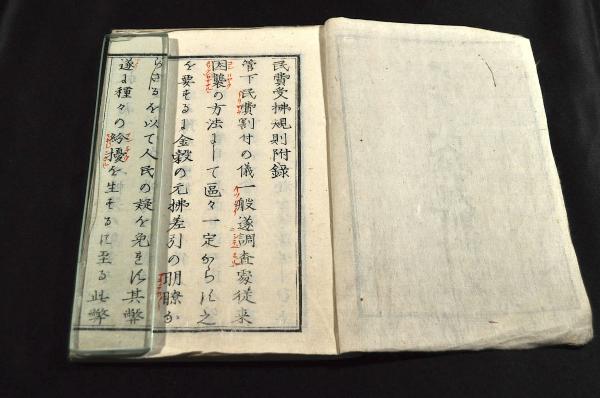 民費受拂規則附録
管下民費割付の儀一般遂調査處従来
因襲の方法よして區々一定からに之
を要をるよ金穀の元拂差引の明瞭か
らさるを以て人民の疑を免をに其弊
遂よ種々の紛擾を生をるに至る此弊